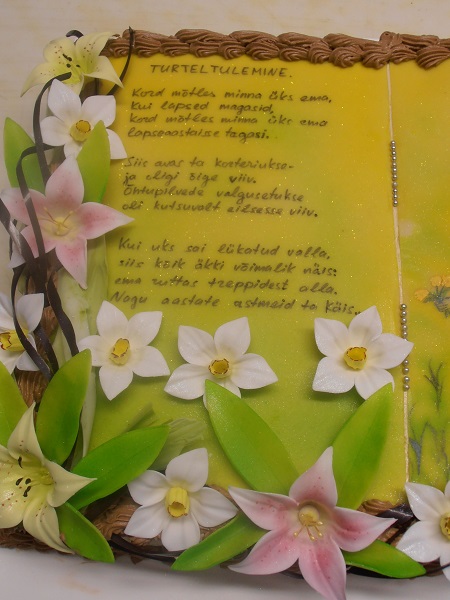 TURTELTULEMINE.
Kord mõtles minna üks ema,
Kui lapsed magasid,
Kord mõtles minna üks ema
lapseaastaisse tagasi.
Siis avas ta korteriukse-
ja oligi õige viiv.
Õhtupilvede valgusetukse
oli kutsuvalt eilsesse viiv.
Kui uks sai lükatud valla,
siis kõik äkki võimalik näis:
ema ruttas treppidest alla.
Nagu aastate astmeid ta käis..